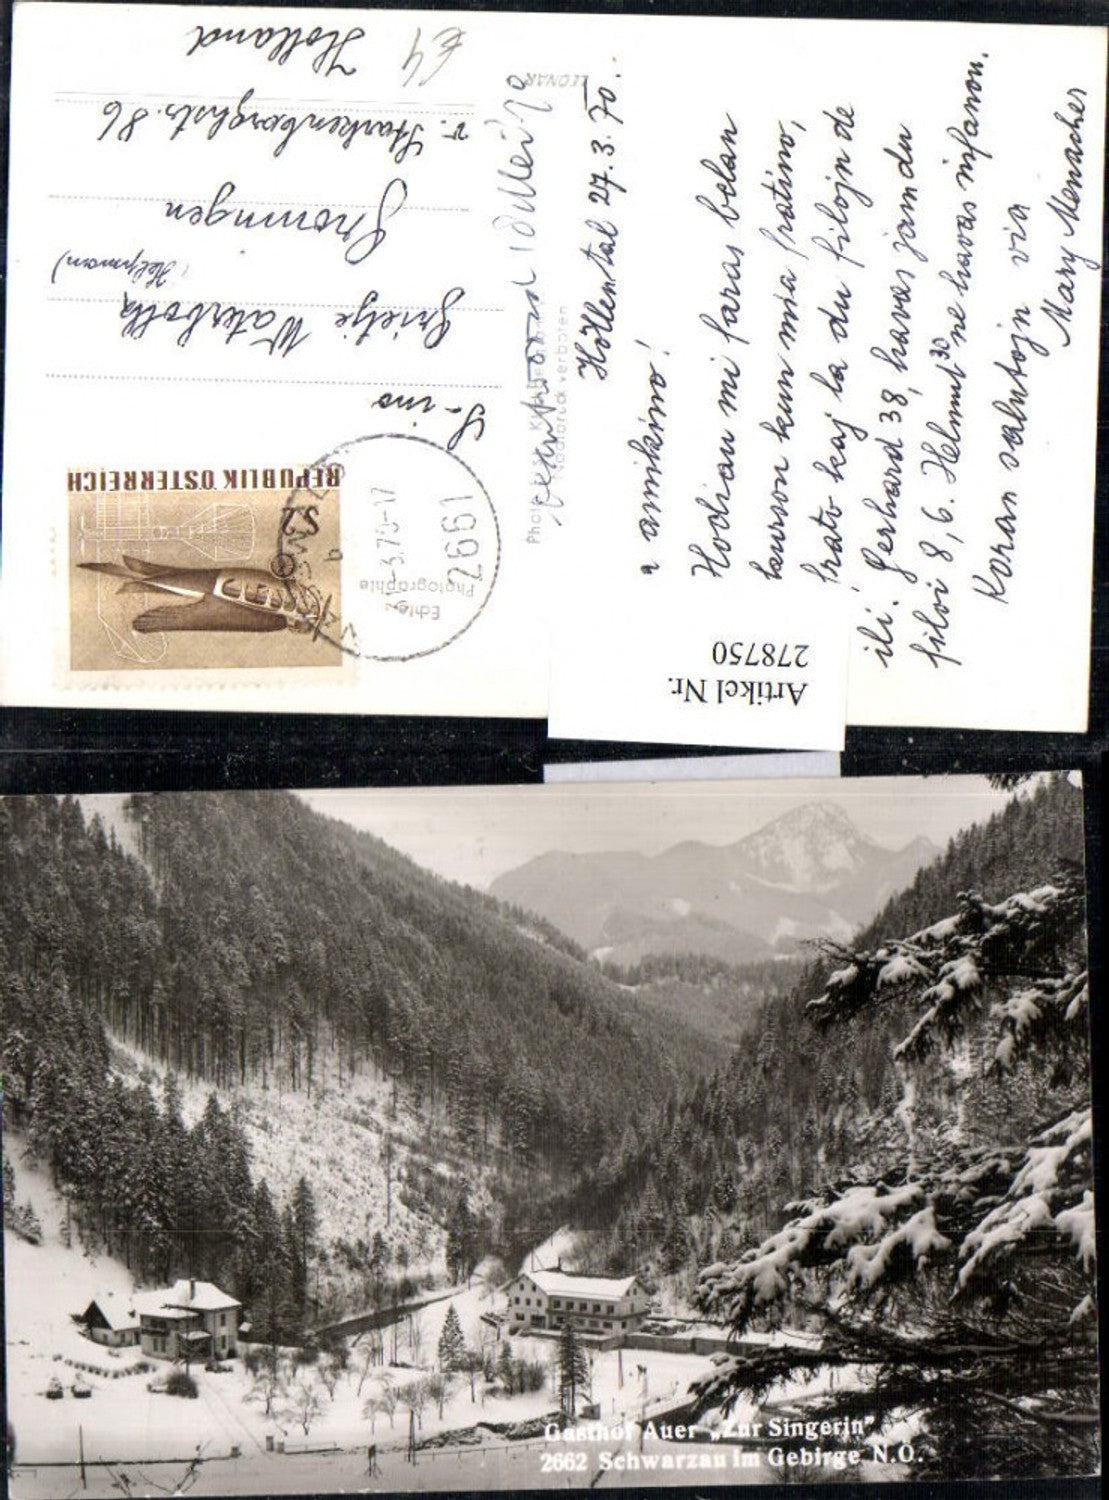 Höllental 27.3.70.
amikino!
Hodiaŭ mi faras belan
kurson kun mia fratino,
frato kaj la du filojn de
ili. Gerhard 38, havas jam du
filoi 8, 6. Helmut 30 ne havas infanon.
Koran salutojn via
Mary Menacher
LEONAR
Echte
Photographie
Nachdruck verboten
REPUBLIK ÖSTERREICH
S 2
2661
S-ino
Grietje Waterbolk
(Helpman)
Groningen
v. Starkenborghstr. 86
Holland
€4
Artikel Nr.
278750
Gasthof Auer „Zur Singerin"
2662 Schwarzau im Gebirge N.Ö.